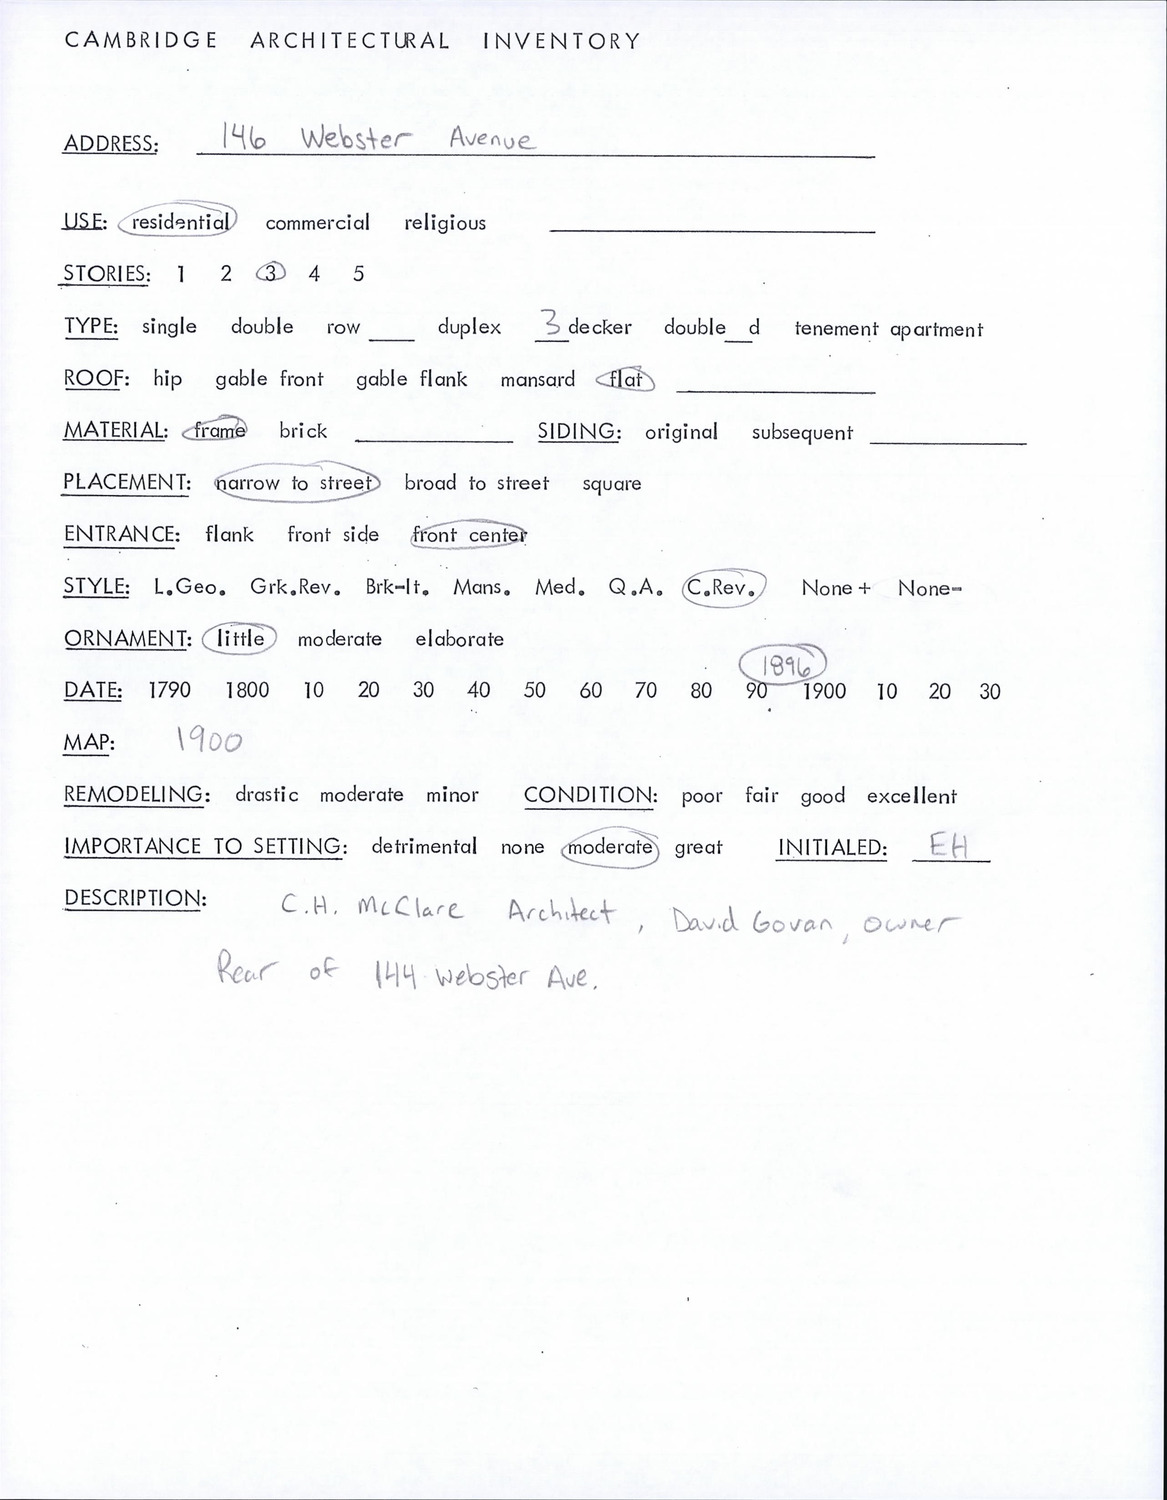 CAMBRIDGE ARCHITECTURAL INVENTORY
ADDRESS: 146 Webster Avenue
USE: residential commercial religious
STORIES: 1 2 3 4 5
TYPE: single double row ___ duplex 3 decker double __d tenement apartment
ROOF: hip gable front gable flank mansard flat
MATERIAL: frame brick ___ SIDING: original subsequent ___
PLACEMENT: narrow to street broad to street square
ENTRANCE: flank front side front center
STYLE: L.Geo. Grk.Rev. Brk-It. Mans. Med. Q.A. C.Rev. None+ None-
ORNAMENT: little moderate elaborate
1896
DATE: 1790 1800 10 20 30 40 50 60 70 80 90 1900 10 20 30
MAP: 1900
REMODELING: drastic moderate minor CONDITION: poor fair good excellent
IMPORTANCE TO SETTING: detrimental none moderate great INITIALED: EH
DESCRIPTION: C.H. McClare Architect, David Govan, owner
Rear of 144 Webster Ave.